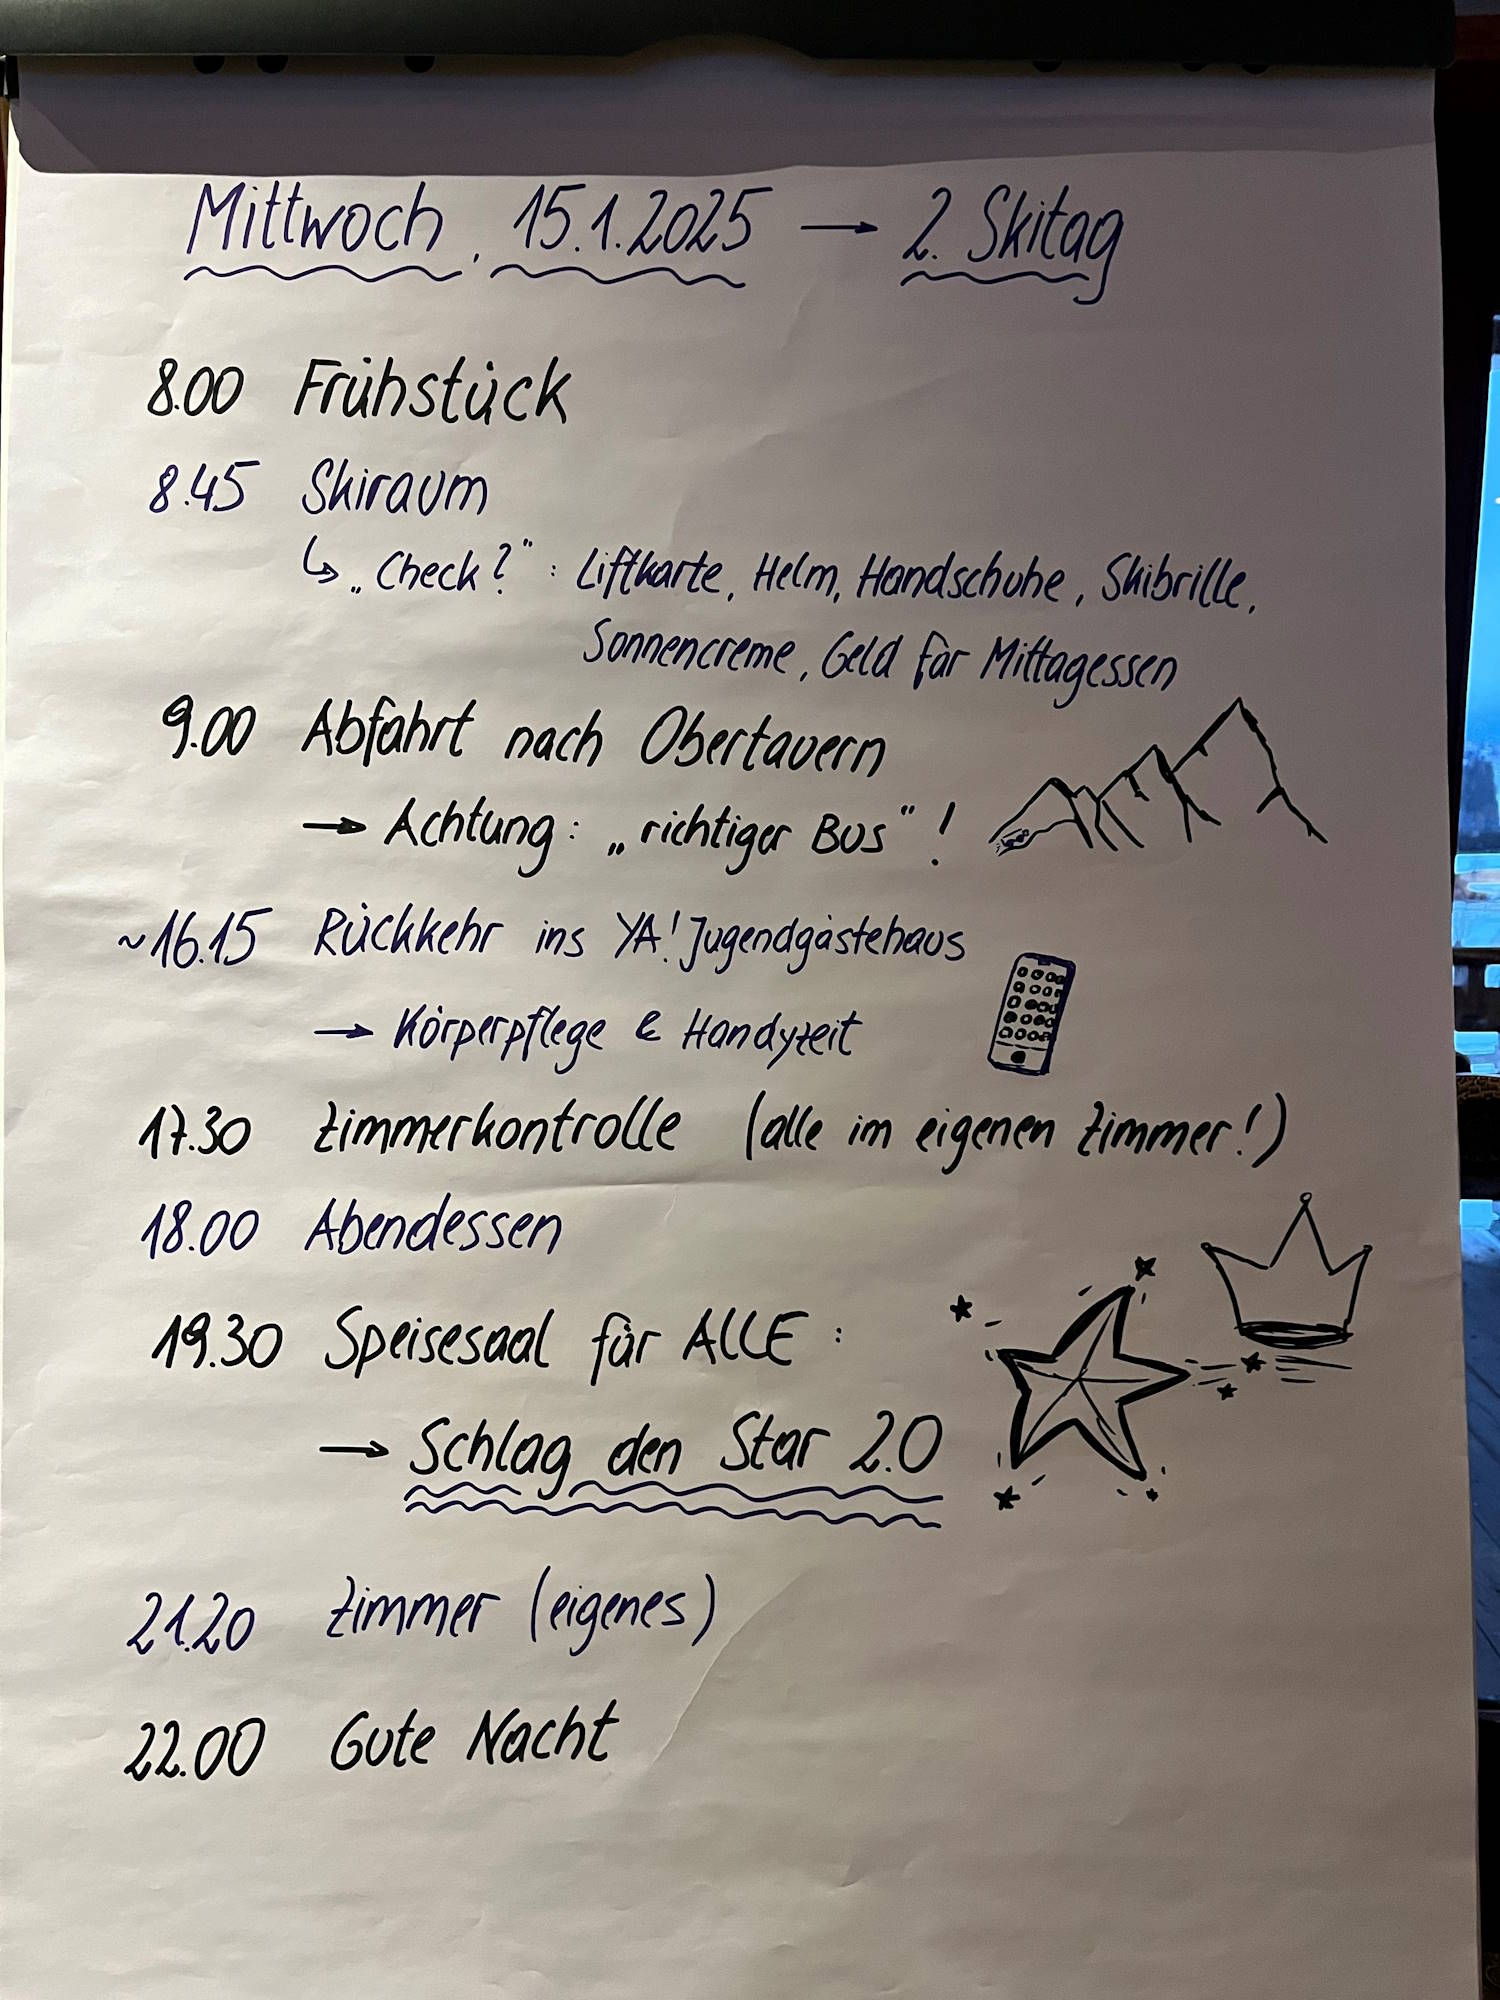 Mittwoch, 15.1.2025 → 2. Skitag
8.00 Frühstück
8.45 Skiraum
↳ „Check?“: Liftkarte, Helm, Handschuhe, Skibrille,
Sonnencreme, Geld für Mittagessen
9.00 Abfahrt nach Obertauern
→ Achtung: „richtiger Bus“!
~16.15 Rückkehr ins YA! Jugendgästehaus
→ Körperpflege & Handyzeit
17.30 Zimmerkontrolle (alle im eigenen Zimmer!)
18.00 Abendessen
19.30 Speisesaal für ALLE:
→ Schlag den Star 2.0
21.20 Zimmer (eigenes)
22.00 Gute Nacht